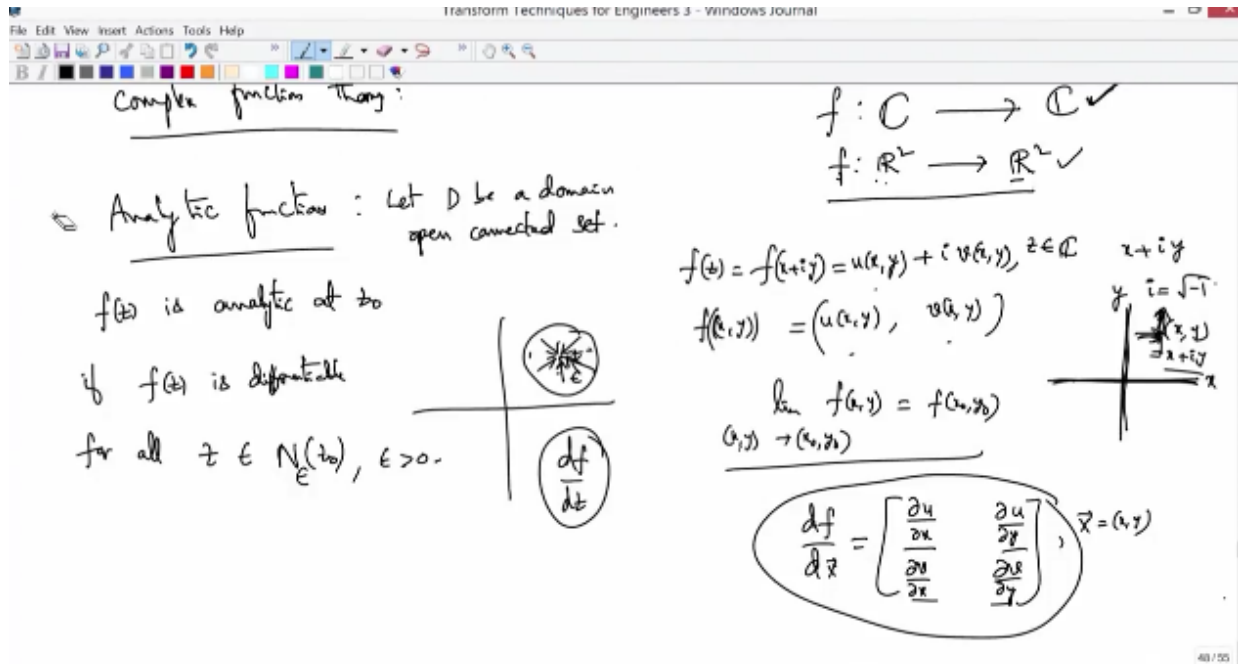 Transform Techniques for Engineers 3 - Windows Journal
File Edit View Insert Actions Tools Help
B I
Complex function Theory:
Analytic function: Let D be a domain
open connected set.
f(z) is analytic at z₀
if f(z) is differentiable
for all z ∈ N_ε(z₀), ε>0.
ε
df/dz
f: ℂ → ℂ ✓
f: ℝ² → ℝ² ✓
f(z) = f(x+iy) = u(x,y) + i v(x,y), z ∈ ℂ
x+iy
i = √-1
f((x,y)) = (u(x,y), v(x,y))
y
(x,y)
= x+iy
x
lim f(x,y) = f(x₀,y₀)
(x,y) → (x₀,y₀)
df/dx⃗ = [∂u/∂x ∂u/∂y
∂v/∂x ∂v/∂y], x⃗ = (x,y)
48/55